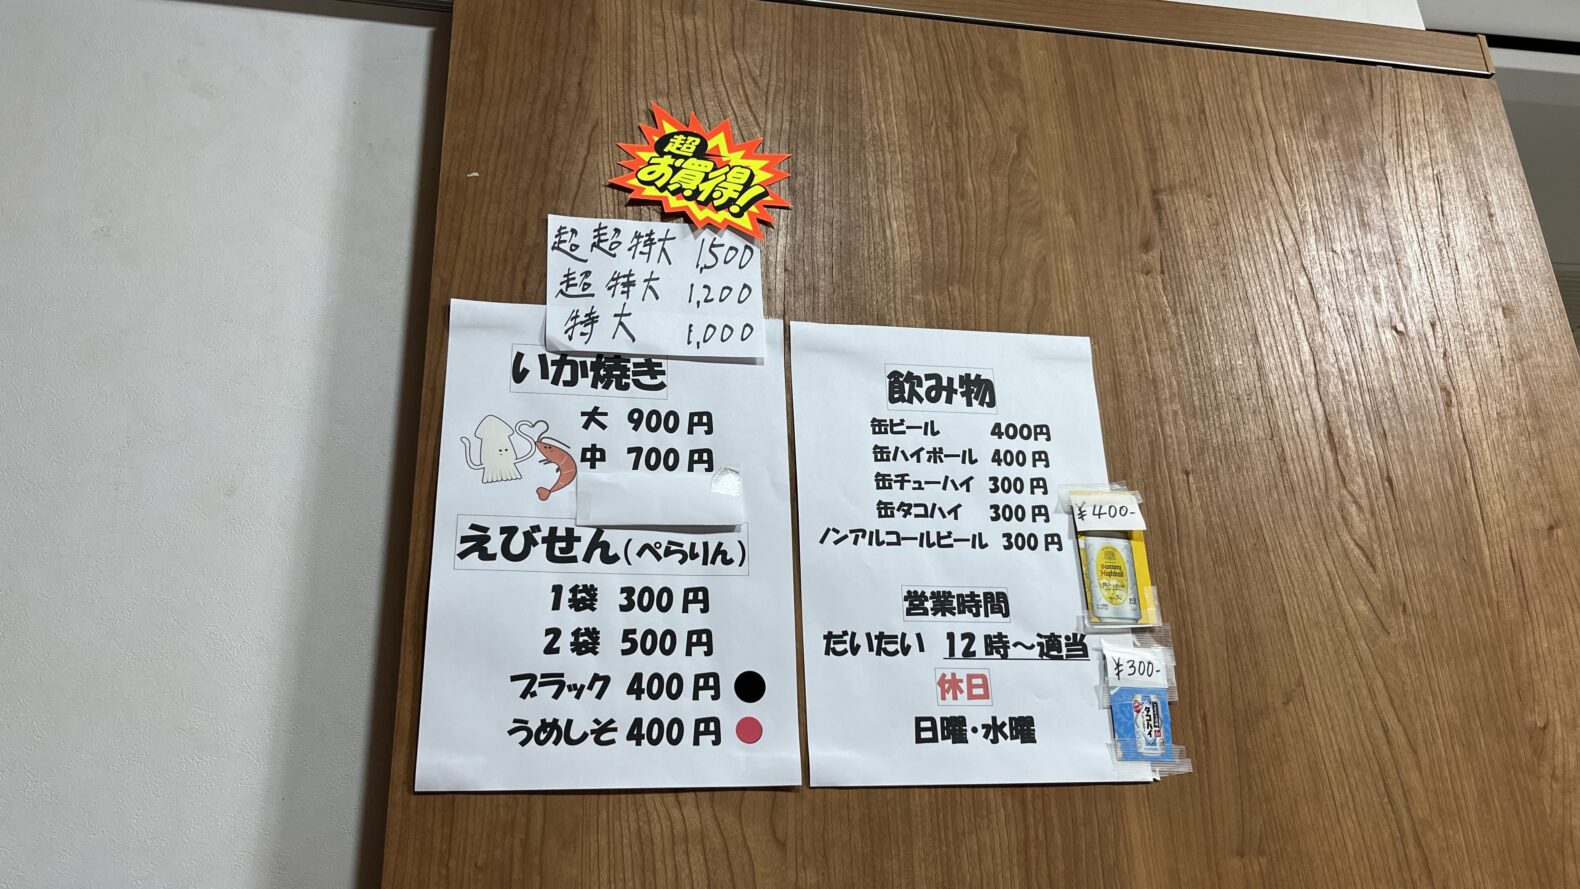 超
お買得!
超超特大 1,500
超特大 1,200
特大 1,000
いか焼き
大 900円
中 700円
えびせん(ぺらりん)
1袋 300円
2袋 500円
ブラック 400円
うめしそ 400円
飲み物
缶ビール 400円
缶ハイボール 400円
缶チューハイ 300円
缶タコハイ 300円
ノンアルコールビール 300円
営業時間
だいたい 12時~適当
休日
日曜・水曜
¥400-
Suntory
Highball
¥300-
タコハイ